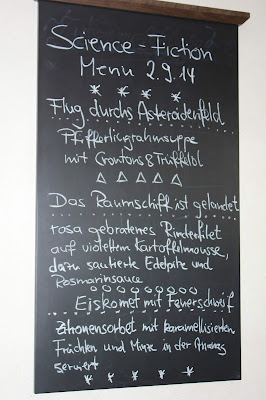 Science-Fiction
Menü 2.9.14
Flug durchs Asteroidenfeld
Pfifferlingrahmsuppe
mit Croutons & Trüffelöl
Das Raumschiff ist gelandet
rosa gebratenes Rinderfilet
auf violettem Kartoffelmousse,
dazu sautierte Edelpilze und
Rosmarinsauce
Eiskomet mit Feuerschweif
Zitronensorbet mit karamellisierten
Früchten und Minze in der Ananas
serviert